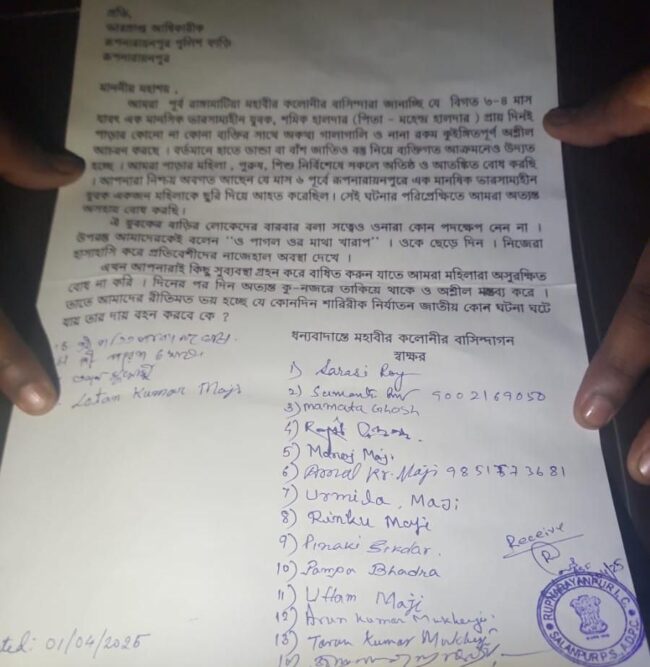 প্রতি,
ভারপ্রাপ্ত আধিকারীক
রূপনারায়নপুর পুলিশ ফাড়ি
রূপনারায়নপুর
মাননীয় মহাশয় ,
আমরা পূর্ব রাঙ্গামাটিয়া মহাবীর কলোনীর বাসিন্দারা জানাচ্ছি যে বিগত ৩-৪ মাস
যাবৎ এক মানসিক ভারসাম্যহীন যুবক, শমিক হালদার (পিতা - মহেন্দ্র হালদার) প্রায় দিনই
পাড়ার কোনো না কোনো ব্যক্তির সাথে অকথ্য গালাগালি ও নানা রকম কুইঙ্গিতপূর্ণ অশ্লীল
আচরন করছে । বর্তমানে হাতে ডান্ডা বা বাঁশ জাতিও বস্তু নিয়ে ব্যক্তিগত আক্রমনেও উদ্যত
হচ্ছে । আমরা পাড়ার মহিলা, পুরুষ, শিশু নির্বিশেষে সকলে অতিষ্ঠ ও আতঙ্কিত বোধ করছি
। আপনারা নিশ্চয় অবগত আছেন যে মাস ৬ পূর্বে রূপনারায়নপুরে এক মানষিক ভারসাম্যহীন
যুবক একজন মহিলাকে ছুরি দিয়ে আহত করেছিল । সেই ঘটনার পরিপ্রেক্ষিতে আমরা অত্যন্ত
অসহায় বোধ করছি।
ঐ যুবকের বাড়ির লোকেদের বারবার বলা সত্ত্বেও ওনারা কোন পদক্ষেপ নেন না ।
উপরন্তু আমাদেরকেই বলেন "ও পাগল ওর মাথা খারাপ" । ওকে ছেড়ে দিন । নিজেরা
হাসাহাসি করে প্রতিবেশীদের নাজেহাল অবস্থা দেখে ।
এখন আপনারাই কিছু সুব্যবস্থা গ্রহন করে বাধিত করুন যাতে আমরা মহিলারা অসুরক্ষিত
বোধ না করি । দিনের পর দিন অত্যন্ত কু-নজরে তাকিয়ে থাকে ও অশ্লীল মন্তব্য করে ।
তাতে আমাদের রীতিমত ভয় হচ্ছে যে কোনদিন শারিরীক নির্যাতন জাতীয় কোন ঘটনা ঘটে
যায় তার দায় বহন করবে কে ?
ধন্যবাদান্তে মহাবীর কলোনীর বাসিন্দাগন
স্বাক্ষর
Lotan Kumar Maji
1) Sarasi Roy
2) 9002169050
3) mamata Ghosh
4)
5) Manoj Maji
6) Amal Kr. Maji
7) Urmila. Maji
8) Rinku Maji
9) Pinaki Sirdar.
10) Pampa Bhadra
11) Uttam Maji
12) Arun Kumar Mukherji
13) Tarun Kumar Mukherji
Receive
RUPNARAYANPUR I.C.
SALANPUR P.S. A.D.P.C.
ted: 01/04/2025